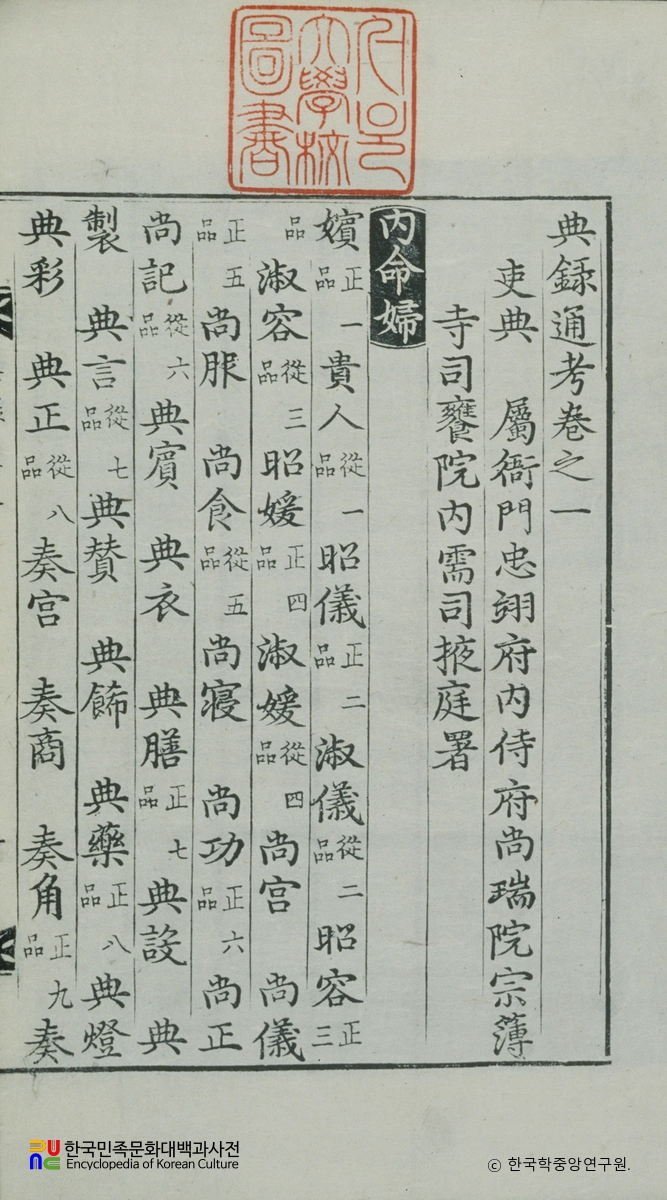 典録通考卷之一
吏典 屬衙門忠翊府内侍府尚瑞院宗簿
寺司饔院内需司掖庭署
内命婦
嬪正一品貴人從一品昭儀正二品淑儀從二品昭容正三
品淑容從三品昭媛正四品淑媛從四品尚宮 尚儀
正五品尚服 尚食從五品尚寝 尚功正六品尚正
尚記從六品典賓 典衣 典膳正七品典設 典
製 典言從七品典賛 典飾 典藥正八品典燈
典彩 典正從八品奏宮 奏商 奏角正九品奏
圖書
大學校
한국민족문화대백과사전
Encyclopedia of Korean Culture
© 한국학중앙연구원.